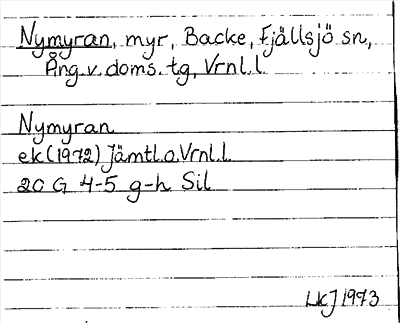 Nymyran, myr, Backe, Fjällsjö sn,
Ång. v. doms. tg, Vrnl. l.
Nymyran
ek (1972) Jämtl. o. Vrnl. l.
20 G 4-5 g-h Sil
LkJ 1973